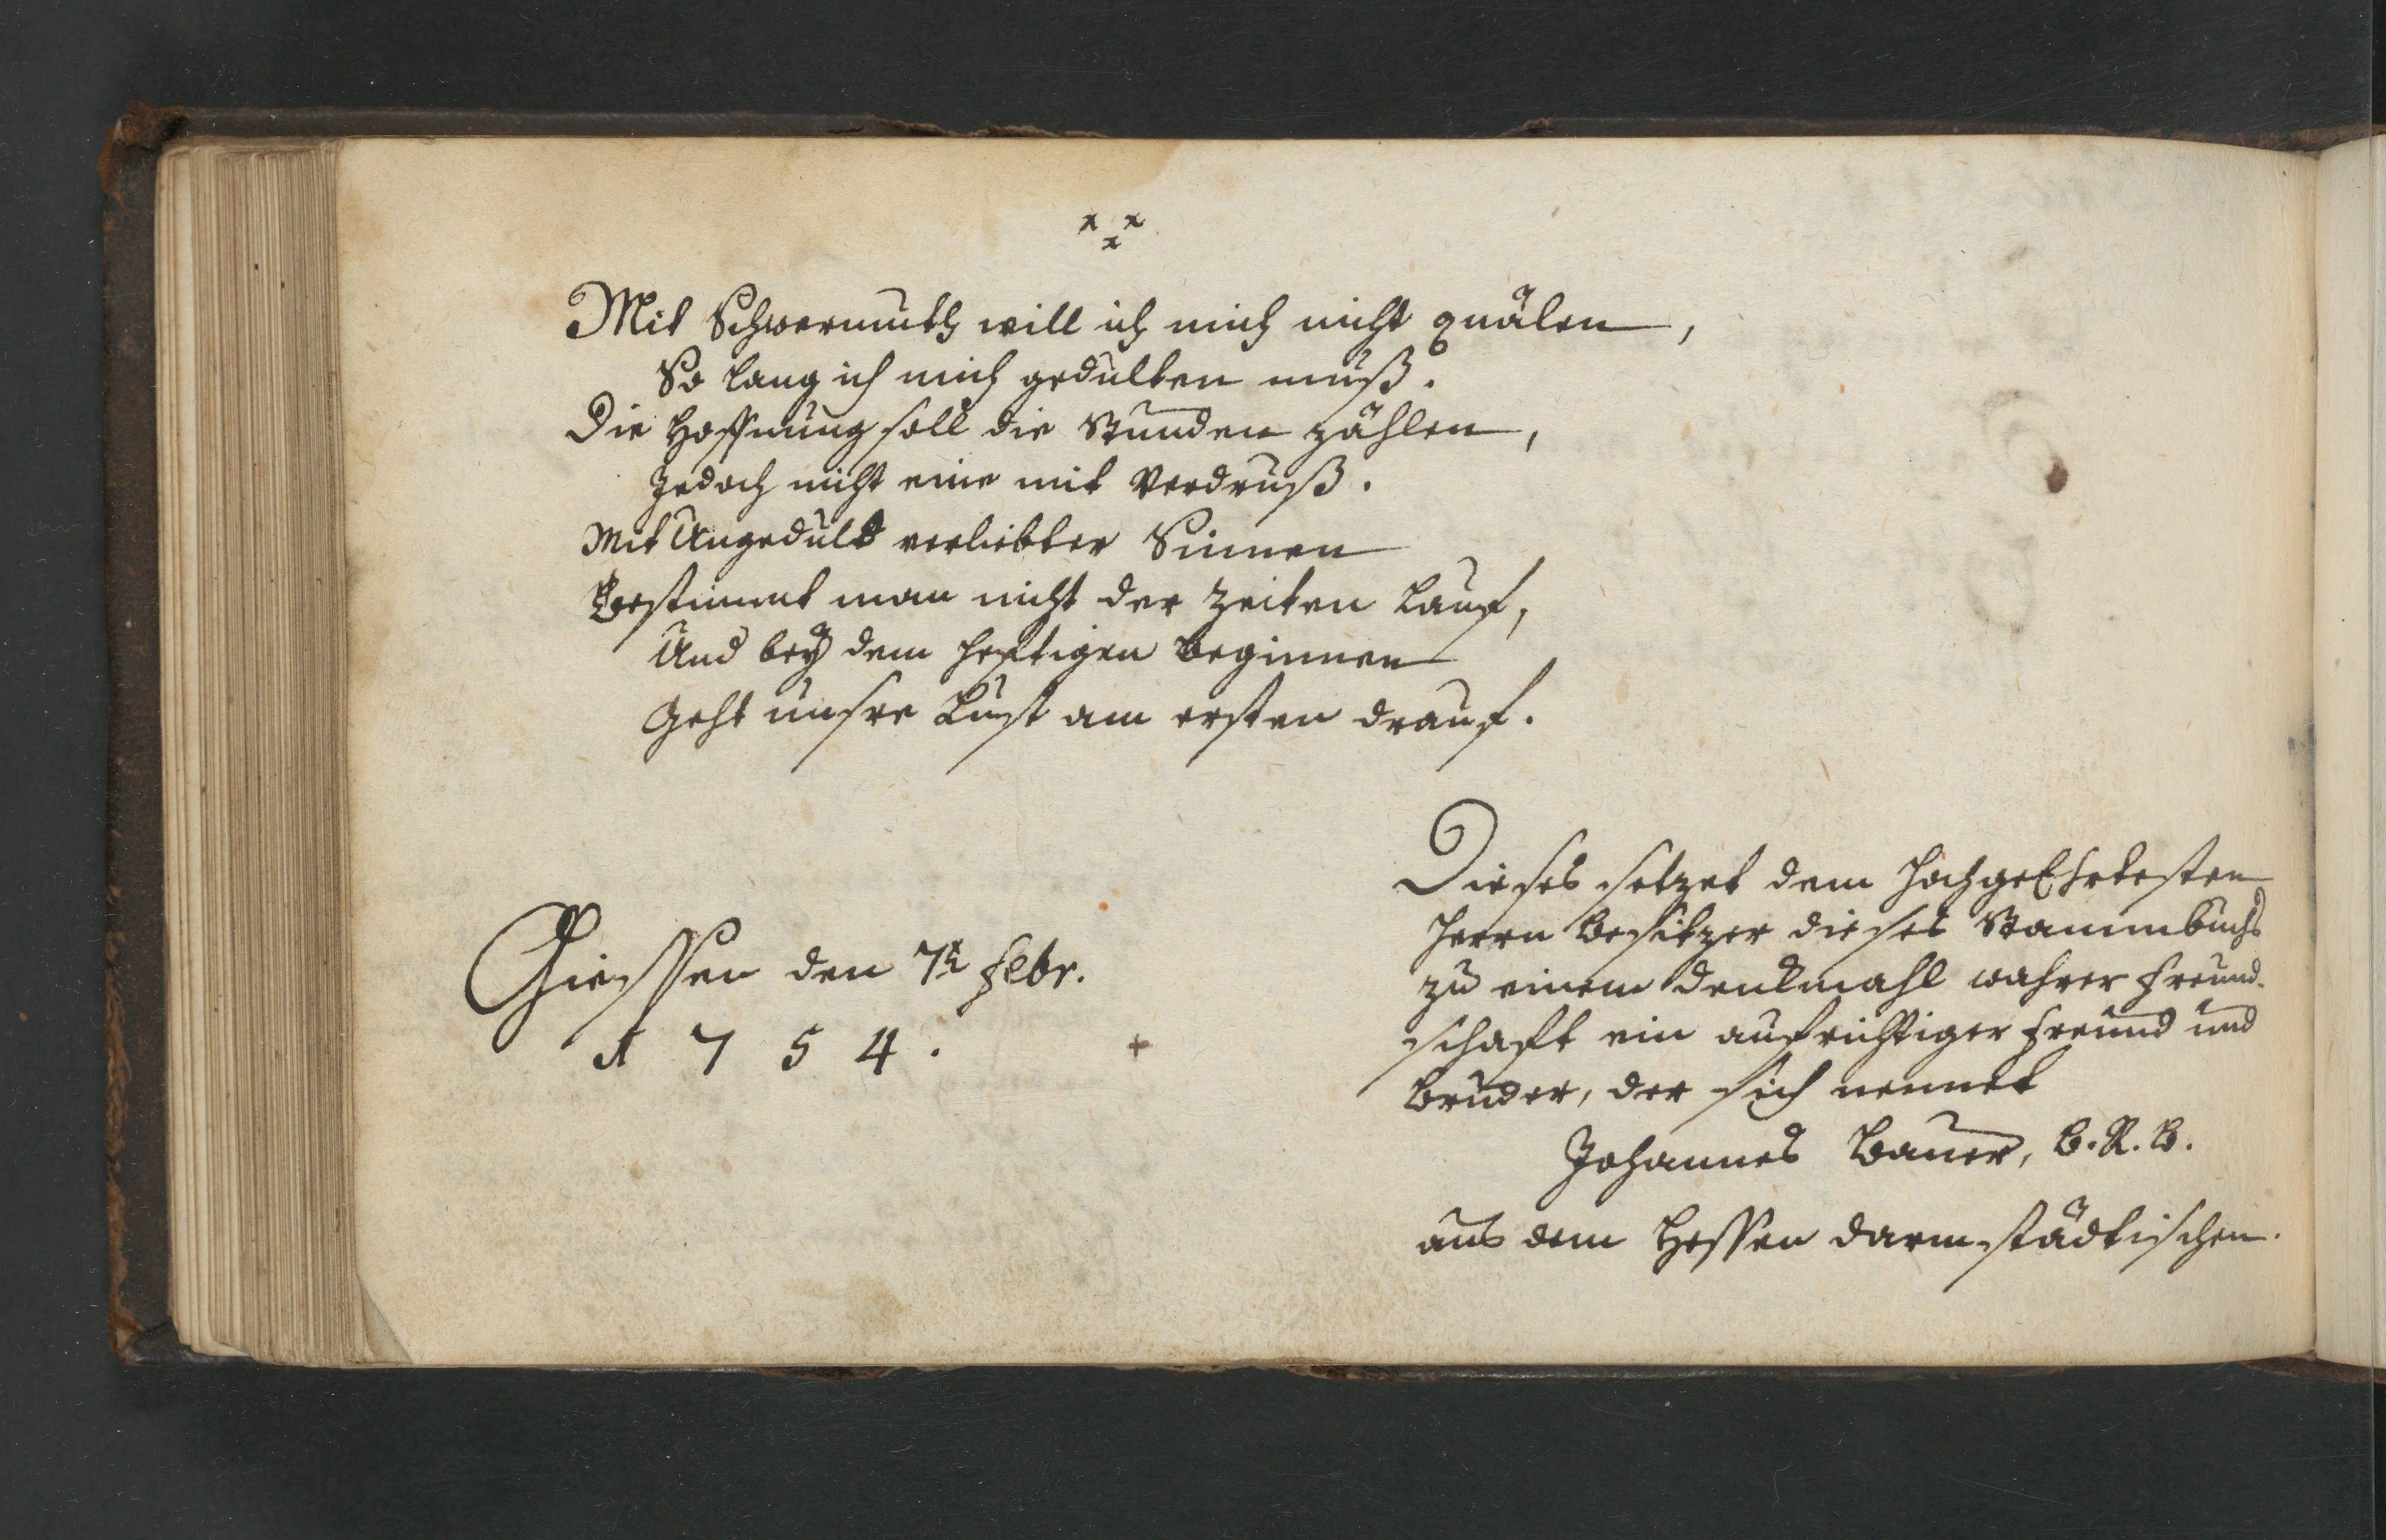 Mit Schwermuth will ich mich nicht quälen,
So lang ich mich gedulten muß.
Die Hoffnung soll die Stunden zählen,
Jedoch nicht eine mit Verdruß.
Mit Ungedult verliebter Sinnen
Bestimmt man nicht der Zeiten Lauf,
Und bey dem heftigen Beginnen
Geht unsre Lust am ersten drauf.
Giessen den 7t. Febr.
1754.
Dieses setzet dem HochgeEhrtesten
Herrn Besitzer dieses Stammbuchs
zu einem Denkmahl wahrer Freund-
schaft ein aufrichtiger Freund und
Bruder, der sich nennet
Johannes Bauer, B. R. B.
aus dem Hessen Darmstädtischen.